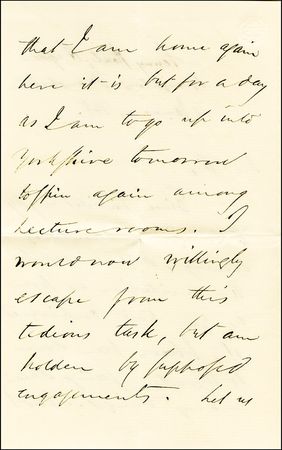 that I am home again
here it is but for a day
as I am to go up into
Yorkshire tomorrow
to spin again among
lecture rooms. I
would now willingly
escape from this
tedious task, but am
holden by supposed
engagements. Let us